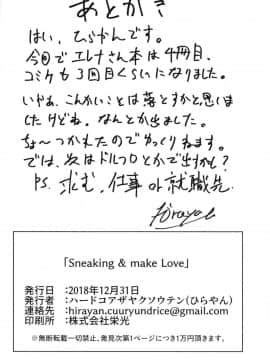 あとがき
はい、ひらやんです。
今回でエレナさん本は4冊目、
コミケも3回目くらいになりました。
いやぁ、こんかいことは落とすかと思いま
したけどね。なんとか出ました。
ちょ〜つかれたのでゆっくりねます。
では、次はドルフロとかで出すかも?
PS. 求む、仕事 or 就職先
Hirayan
「Sneaking & make Love」
発行日:2018年12月31日
発行者:ハードコアザヤクソウテン(ひらやん)
連絡先:hirayan.cuuryundrice@gmail.com
印刷所:株式会社栄光
※無断転載一切禁止、発見次第1ページにつき1万円頂きます。